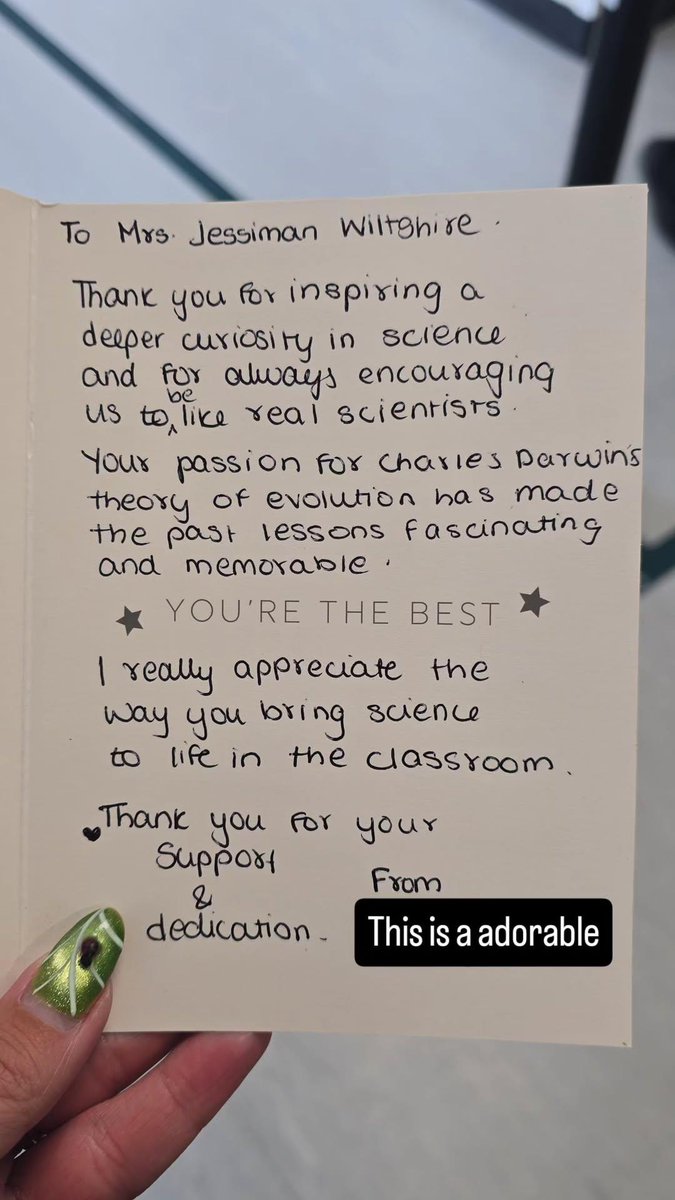 To Mrs. Jessiman Wiltshire.
Thank you for inspiring a
deeper curiosity in science
and for always encouraging
us to be like real scientists.
Your passion for Charles Darwin's
theory of evolution has made
the past lessons fascinating
and memorable.
YOU'RE THE BEST
I really appreciate the
way you bring science
to life in the classroom.
Thank you for your
support
&
dedication.
From
This is a adorable